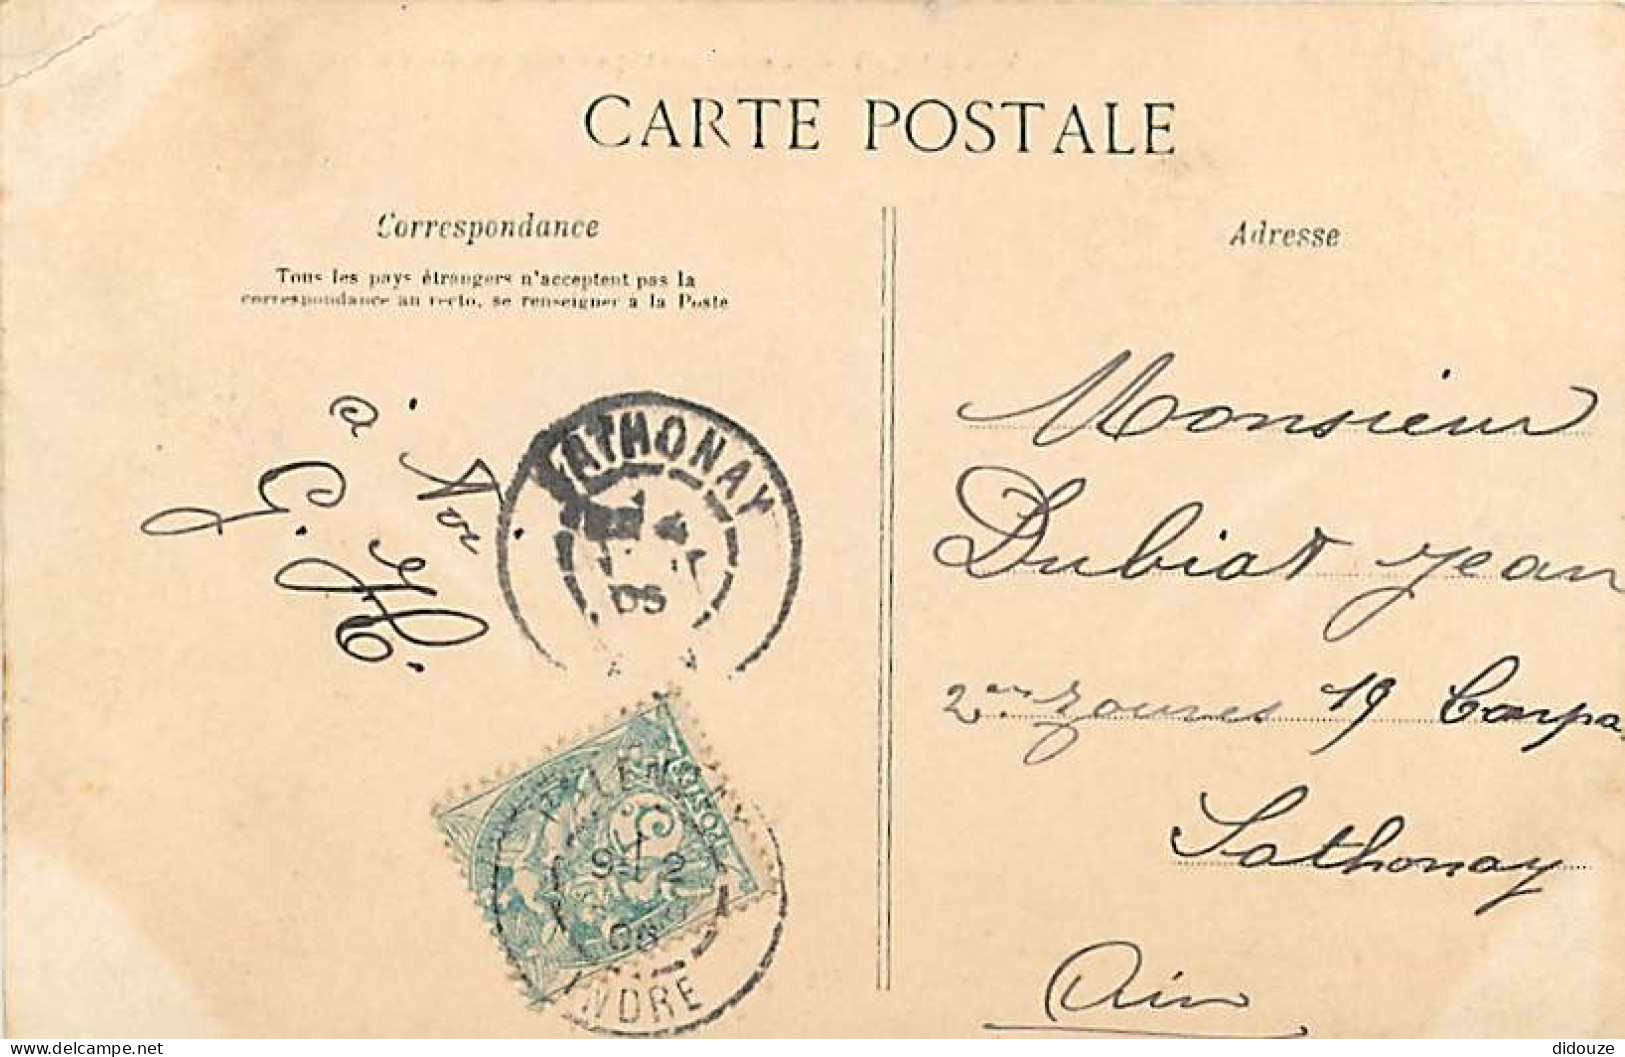 CARTE POSTALE
Correspondance
Tous les pays étrangers n'acceptent pas la
correspondance au recto, se renseigner à la Poste
Adresse
à
G. H.
SATHONAY
05
9 / 2
INDRE
Monsieur
Dubiat Jean
2ème zouaves 19
Sathonay
Ain
delcampe.net
didouze